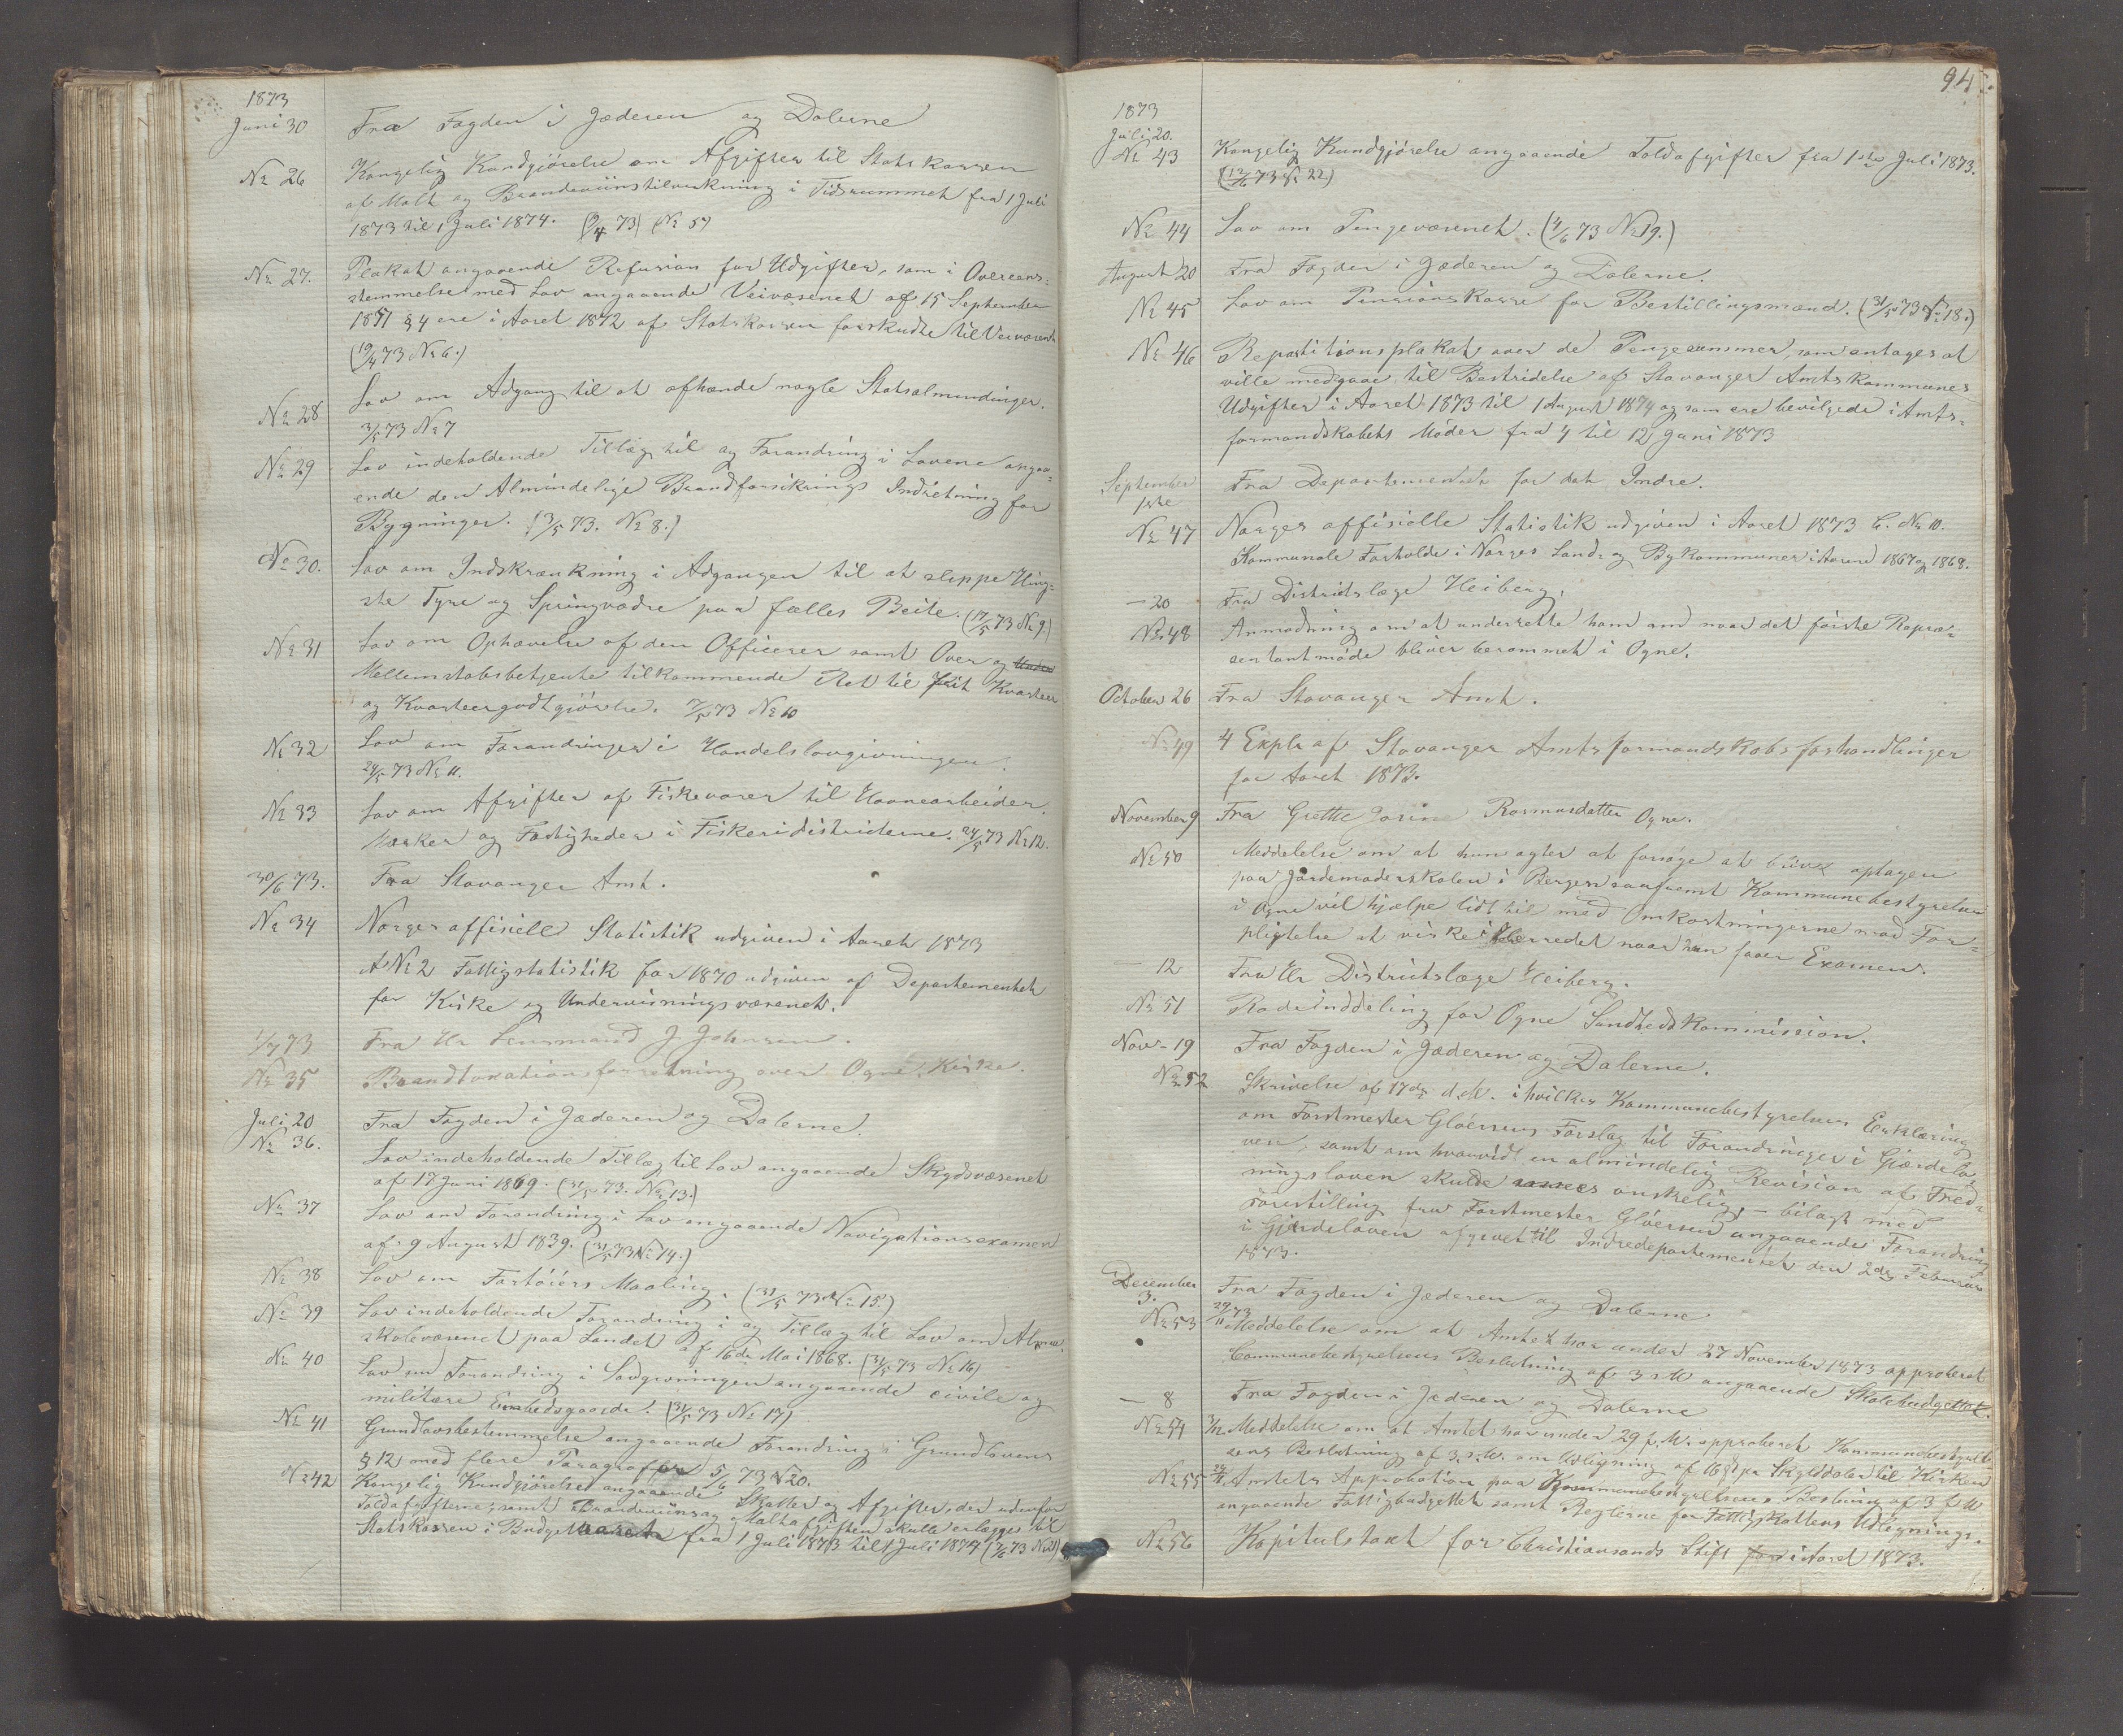 1873
Juni 30 Fra Fogden i Jæderen og Dalerne
No 26 Kongelig Kundgjörelse om Afgifter til Statskassen
af Malt og Brændeviinstilvirkning i Tidsrummet fra 1 Juli
1873 til 1 Juli 1874. (9/4 73) (No 5)
No 27. Plakat angaaende Refusion for Udgifter, som i Overeens-
stemmelse med Lov angaaende Veivæsenet af 15 September
1851 § 4 ere i Aaret 1872 af Statskassen forskudte til Veivæsenet
(19/4 73 No 6.)
No 28 Lov om Adgang til at afhænde nogle Statsalmindinger.
3/5 73 No 7
No 29 Lov indeholdende Tillæg til og Forandring i Lovene angaa-
ende den Almindelige Brandforsikrings Indretning for
Bygninger. (3/5 73. No 8.)
No 30. Lov om Indskrænkning i Adgangen til at slippe Hing-
ste Tyre og Springvædre paa fælles Beite. (17/5 73 No 9.)
No 31 Lov om Ophævelse af den Officerer samt Over og Under
Mellemstabsbetjente tilkommende Ret til frit Kvarteer
og Kvarteergodtgjörelse. 7/5 73 No 10
No 32 Lov om Forandringer i Handelslovgivningen.
24/5 73 No 11.
No 33 Lov om Afgifter af Fiskevarer til Havnearbeider
Mærker og Fastigheder i Fiskeridistricterne. 24/5 73 No 12.
30/6 73. Fra Stavanger Amt.
No 34 Norges officiell Statistik udgiven i Aaret 1873
A No 2 Fattigstatistik for 1870 udgiven af Departementet
for Kirke og Undervisningsvæsenet.
1/7 73 Fra Hr Lensmand J Johnsen.
No 35 Brandtaxationsforretning over Ogne Kirke.
Juli 20 Fra Fogden i Jæderen og Dalerne
No 36. Lov indeholdende Tillæg til Lov angaaende Skydsvæsenet
af 17 Juni 1869. (31/5 73. No 13.)
No 37 Lov om Forandring i Lov angaaende Navigationsexamen
af 9 August 1839. (31/5 73 No 14.)
No 38 Lov om Fartöiers Maaling. (31/5 73 No 15.)
No 39 Lov indeholdende Forandring i og Tillæg til Lov om Almue-
skolevæsenet paa Landet af 16de Mai 1868. (31/5 73 No 16)
No 40 Lov om Forandring i Lovgivningen angaaende civile og
militære Embedsgaarde. (31/5 73 No 17)
No 41 Grundlovsbestemmelse angaaende Forandring i Grundlovens
§ 12 med flere Paragrafer 5/6 73 No 20.
No 42 Kongelig Kundgjörelse angaaende Skatter og Afgifter, der udenfor
Toldafgifterne, samt Brændeviins og Maltafgiften skulle erlægges til
Statskassen i Budgetaaret fra 1 Juli 1873 til 1 Juli 1874 (7/6 73 No 21)
94
1873
Juli 20.
No 43 Kongelig Kundgjörelse angaaende Toldafgifter fra 1ste Juli 1873.
(12/6 73 No 22)
No 44 Lov om Pengevæsenet. (4/6 73 No 19.)
August 20 Fra Fogden i Jæderen og Dalerne.
No 45 Lov om Pensionskasse for Bestillingsmænd. (31/5 73 No 18.)
No 46 Repartitionsplakat over de Pengesummer, som antages at
ville medgaae til Bestridelse af Stavanger Amtskommunes
Udgifter i Aaret 1873 til 1 August 1874 og som ere bevilgede i Amts-
formandskabets Möder fra 4 til 12 Juni 1873
September
1ste Fra Departementet for det Indre.
No 47 Norges officielle Statistik udgiven i Aaret 1873 C. No 10.
Kommunale Forholde i Norges Land- og Bykommuner i Aarene 1867 og 1868.
— 20 Fra Districtslæge Heiberg.
No 48 Anmodning om at underrette ham om naar det förste Repræ-
sentantmöde bliver berammet i Ogne.
October 26 Fra Stavanger Amt.
No 49 4 Expl af Stavanger Amtsformandskabsforhandlinger
for Aaret 1873.
November 9 Fra Grethe Jorine Rasmusdatter Ogne.
No 50 Meddelelse om at hun agter at forsöge at blive optagen
paa Jordemoderskolen i Bergen saafremt Kommunebestyrelsen
i Ogne vil hjælpe lidt til med Omkostningerne mod For-
pligtelse at virke i Herredet naar hun faaer Examen.
— 12 Fra Hr Districtslæge Heiberg.
No 51 Rodeinddeling for Ogne Sundhedskommission.
Nov. 19 Fra Fogden i Jæderen og Dalerne.
No 52 Skrivelse af 17de d.M. i hvilken Kommunebestyrelsens Erklæring
om Forstmester Glöersens Forslag til Forandringer i Gjærdelo-
ven, samt om hvorvidt en almindelig Revision af Fred-
ningsloven skulde ansees önskelig, – bilagt med
Forestilling fra Forstmester Glöersen angaaende Forandring
i Gjerdeloven afgivet til Indredepartementet den 2de Februar
1873.
December
3. Fra Fogden i Jæderen og Dalerne.
No 53 29/11 73 Meddelelse om at Amtet har under 27 November 1873 approberet
Communebestyrelsens Beslutning af 3 s.M angaaende Skolebudgettet.
— 8 Fra Fogden i Jæderen og Dalerne
No 54 3/12 Meddelelse om at Amtet har under 29 f.M. approberet Kommunebestyrel-
sens Beslutning af 3. s.M. om Udligning af 16 s pr Skylddaler til Kirken
No 55 Amtets Approbation paa Kommunebestyrelsens Beslutning af 3 f M
angaaende Fattigbudgettet samt Reglerne for Fattigskattens Udlignings.
No 56 Kapitulstaxt for Christiansands Stift for i Aaret 1873.